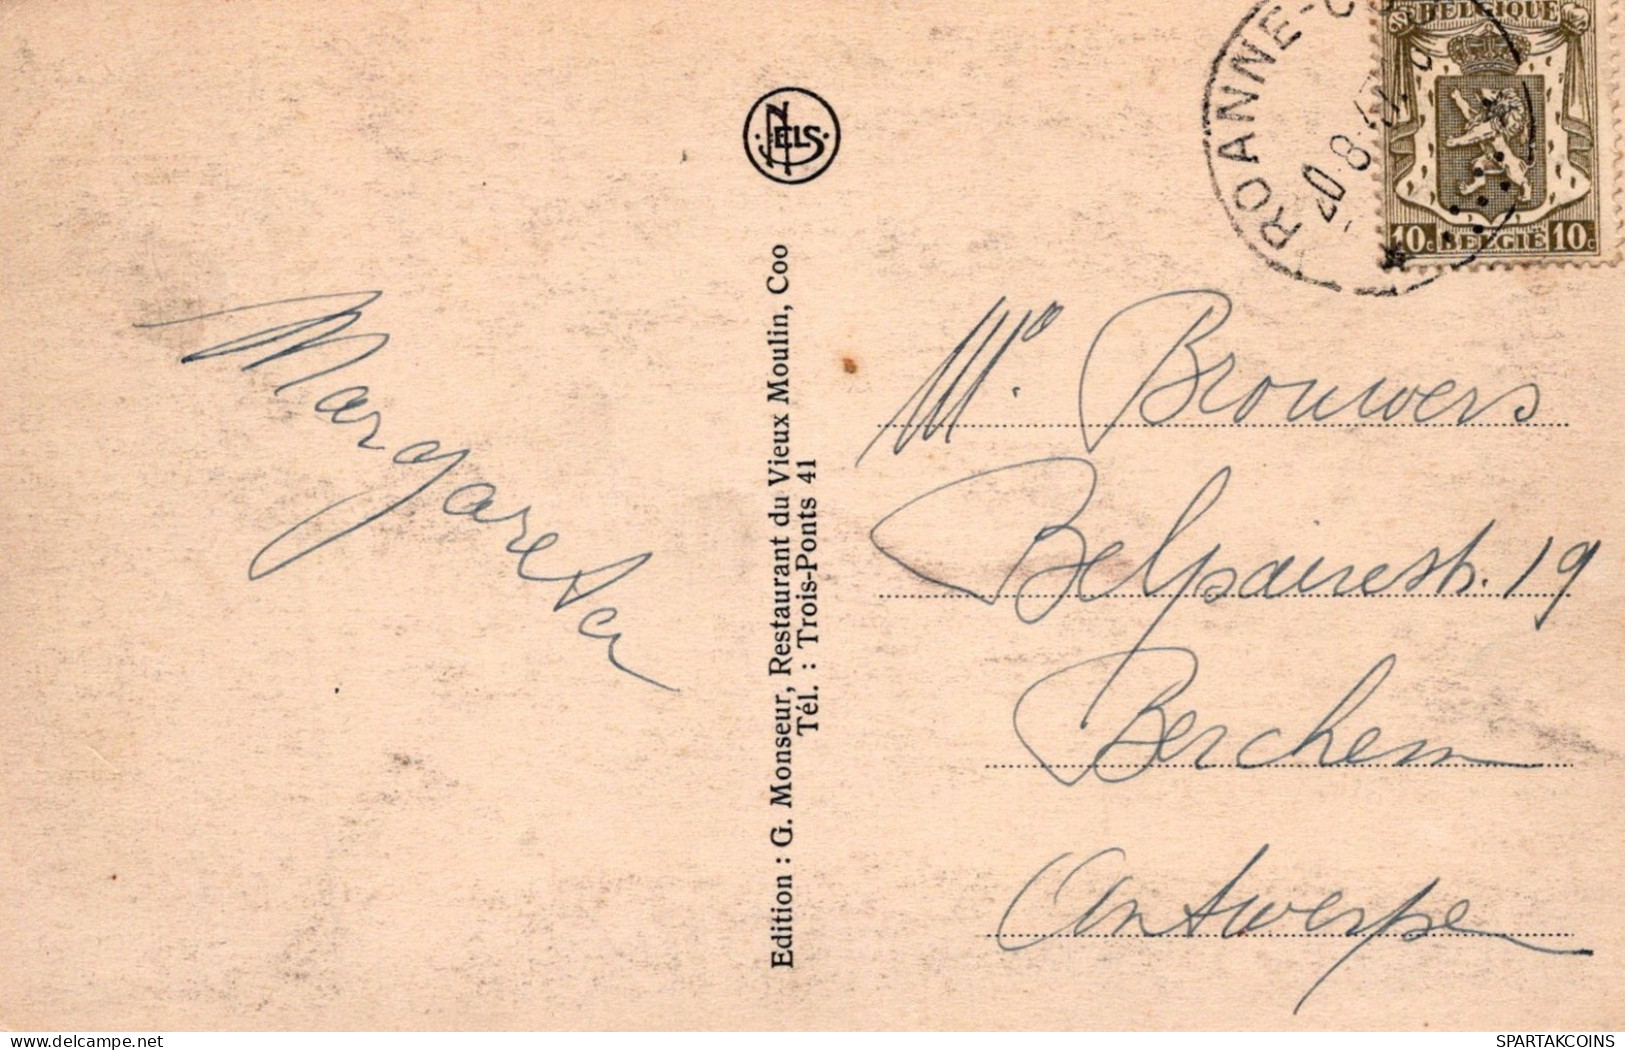 BELGIQUE
10c BELGIË 10c
ROANNE-CO
20.8
NELS
Margareta
Edition : G. Monseur, Restaurant du Vieux Moulin, Coo
Tél. : Trois-Ponts 41
Mo. Brouwers
Belpairestr. 19
Berchem
Antwerpen
delcampe.net
SPARTAKCOINS